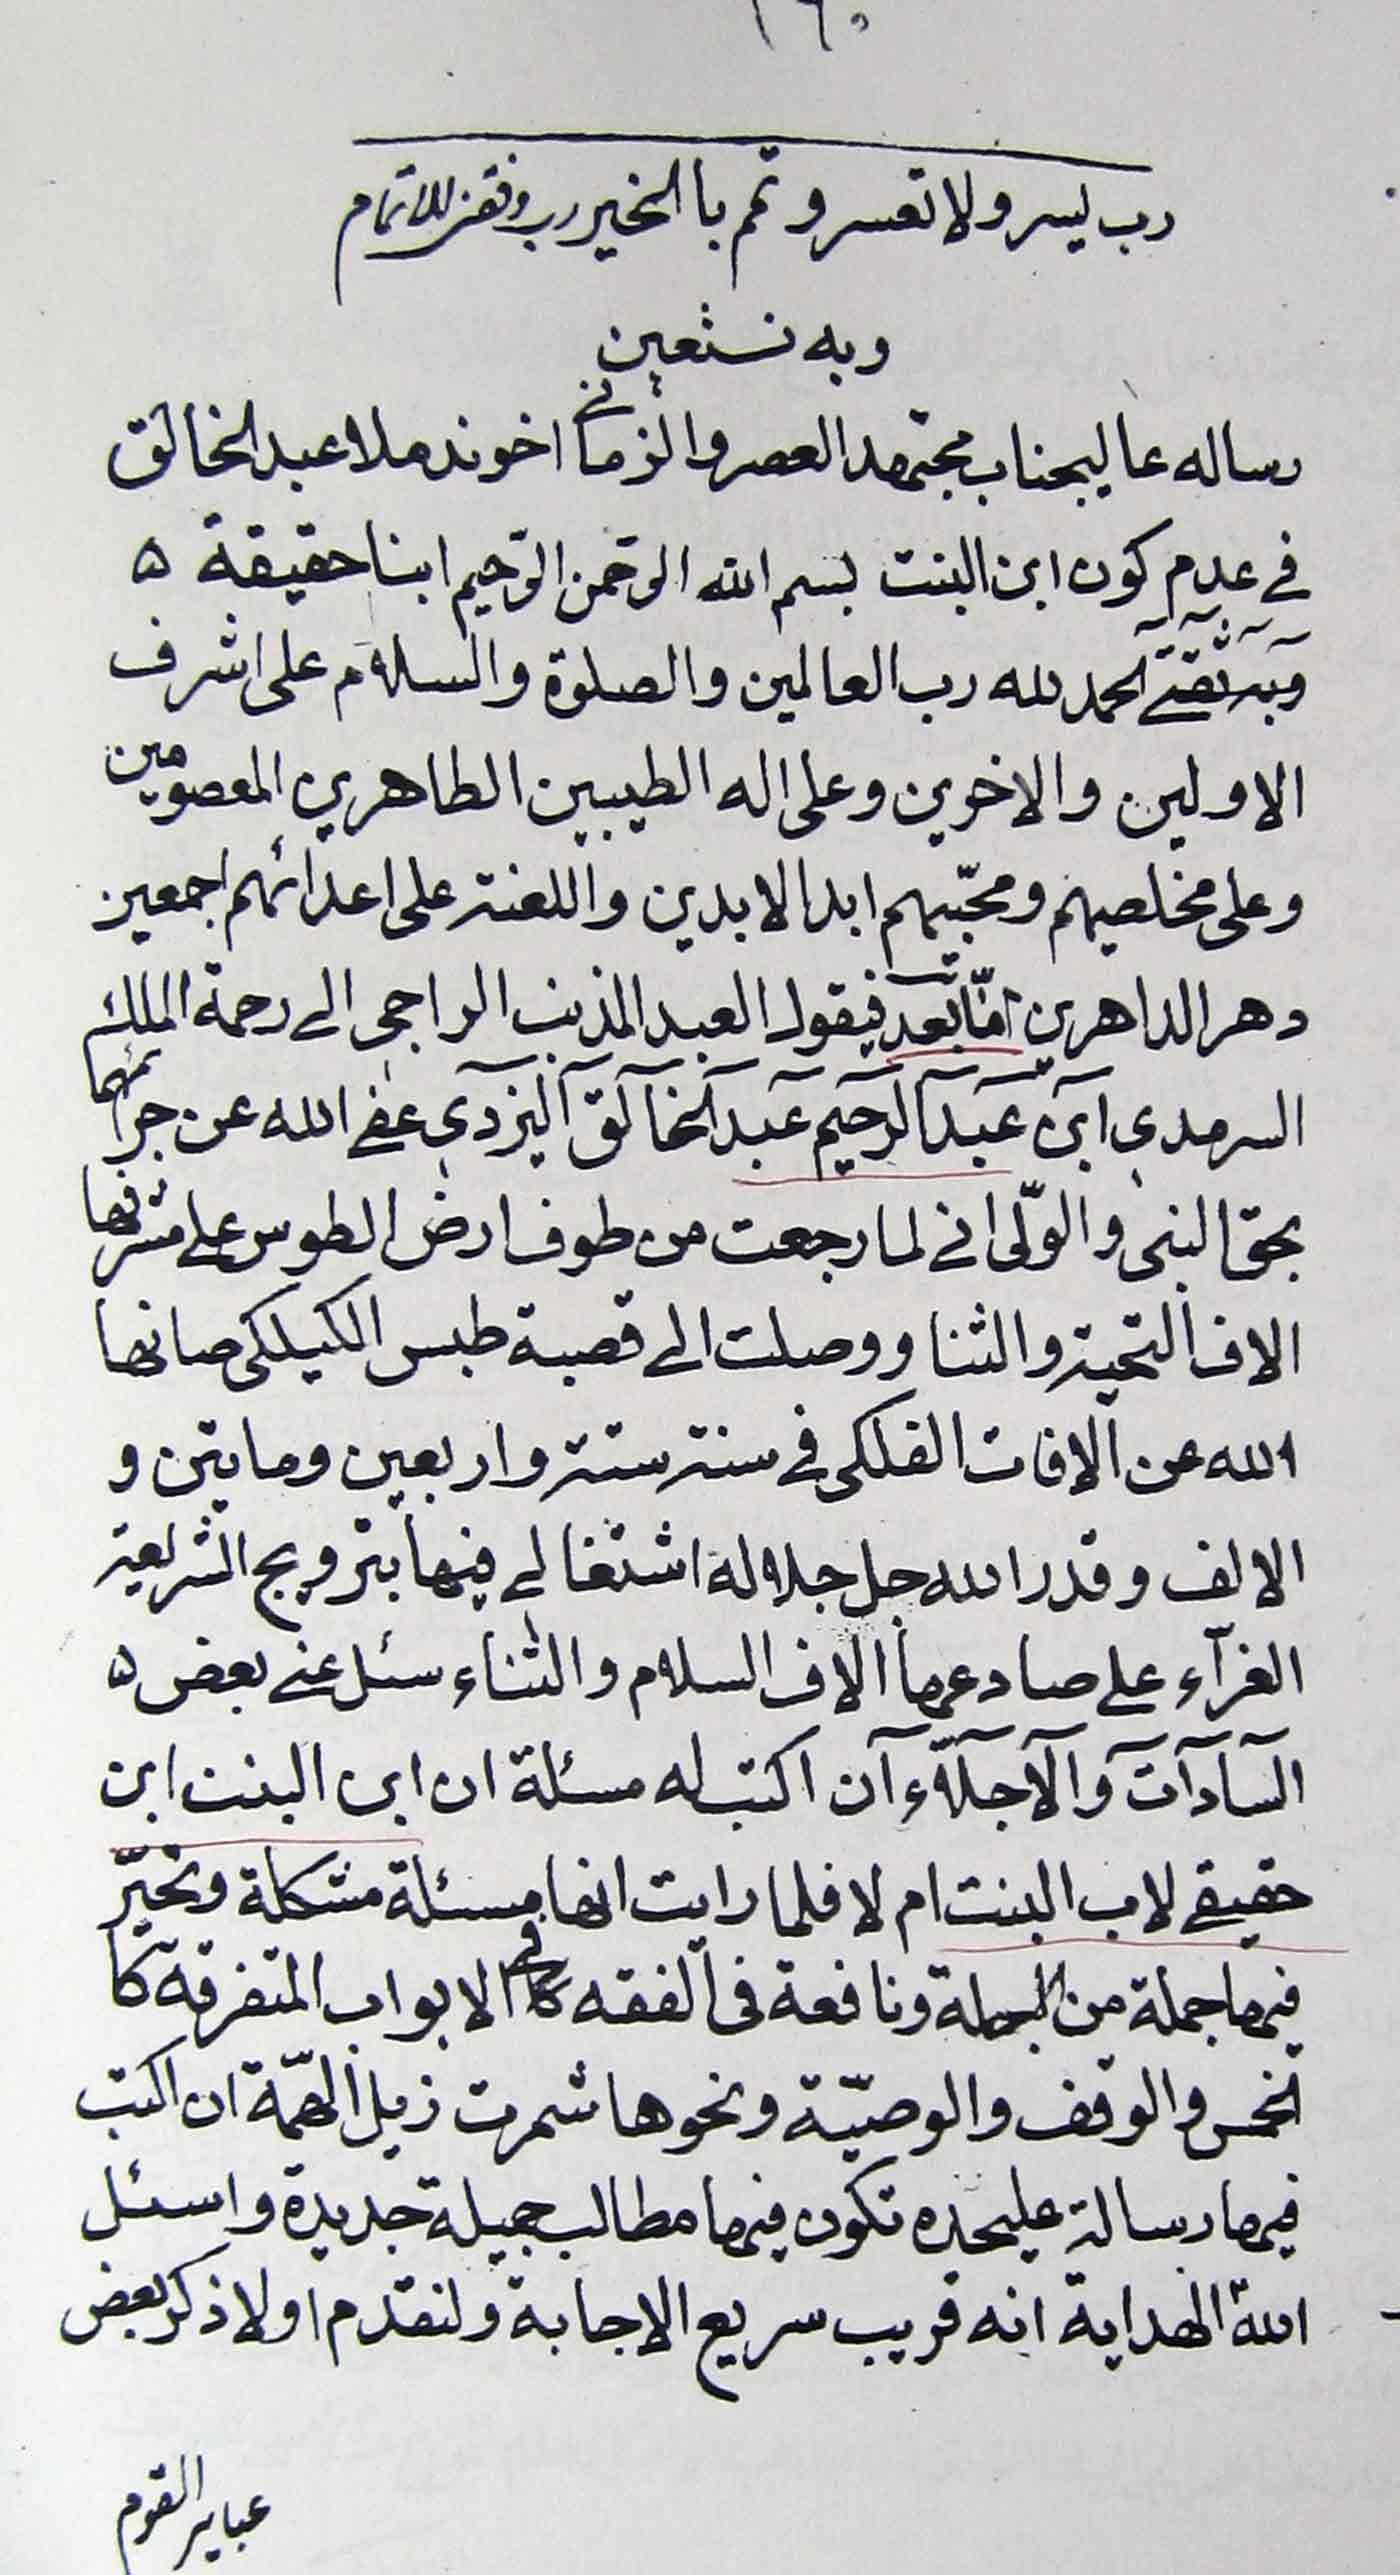 ١٦٠
رب يسر ولا تعسر وتمم بالخير رب وفقني للاتمام
وبه نستعين
رساله عاليجناب مجتهد العصر والزماني اخوند ملا عبد الخالق
في عدم كون ابن البنت بسم الله الرحمن الرحيم ابنا حقيقة ۵
وبه ثقتي الحمد لله رب العالمين والصلوة والسلام على اشرف
الاولين والاخرين وعلى اله الطيبين الطاهرين المعصومين
وعلى مخلصيهم ومحبّيهم ابد الابدين واللعنة على اعدائهم اجمعين
دهر الداهرين امّا بعد فيقول العبد المذنب الراجي الى رحمة الملك
السرمدي ابن عبد الرحيم عبد الخالق اليزدي عفي الله عن جرائمهما
بحق النبي والولّى انى لما رجعت من طوف ارض الطوس على مشرفها
الاف التحية والثنا ووصلت الى قصبة طبس الكيلكى صانها
الله عن الافات الفلكى في سنة ستة واربعين ومايتين و
الالف وقدر الله جل جلاله اشتغالي فيها بترويج الشريعة
الغرآء على صادعها الاف السلام والثناء سئل عني بعض ۵
السادات والاجلّاء ان اكتب له مسئلة ان ابن البنت ابن
حقيقي لاب البنت ام لا فلما رايت انها مسئلة مشكلة وتحيّر
فيها جملة من ونافعة في الفقه في الابواب المتفرقه كا
لخمس والوقف والوصيّة ونحوها شمرت ذيل الهمّة ان اكتب
فيها رسالة عليحده تكون فيها مطالب جميلة جديدة واسئل
الله الهداية انه قريب سريع الاجابة ولنقدم اولا ذكر بعض
عباير القوم